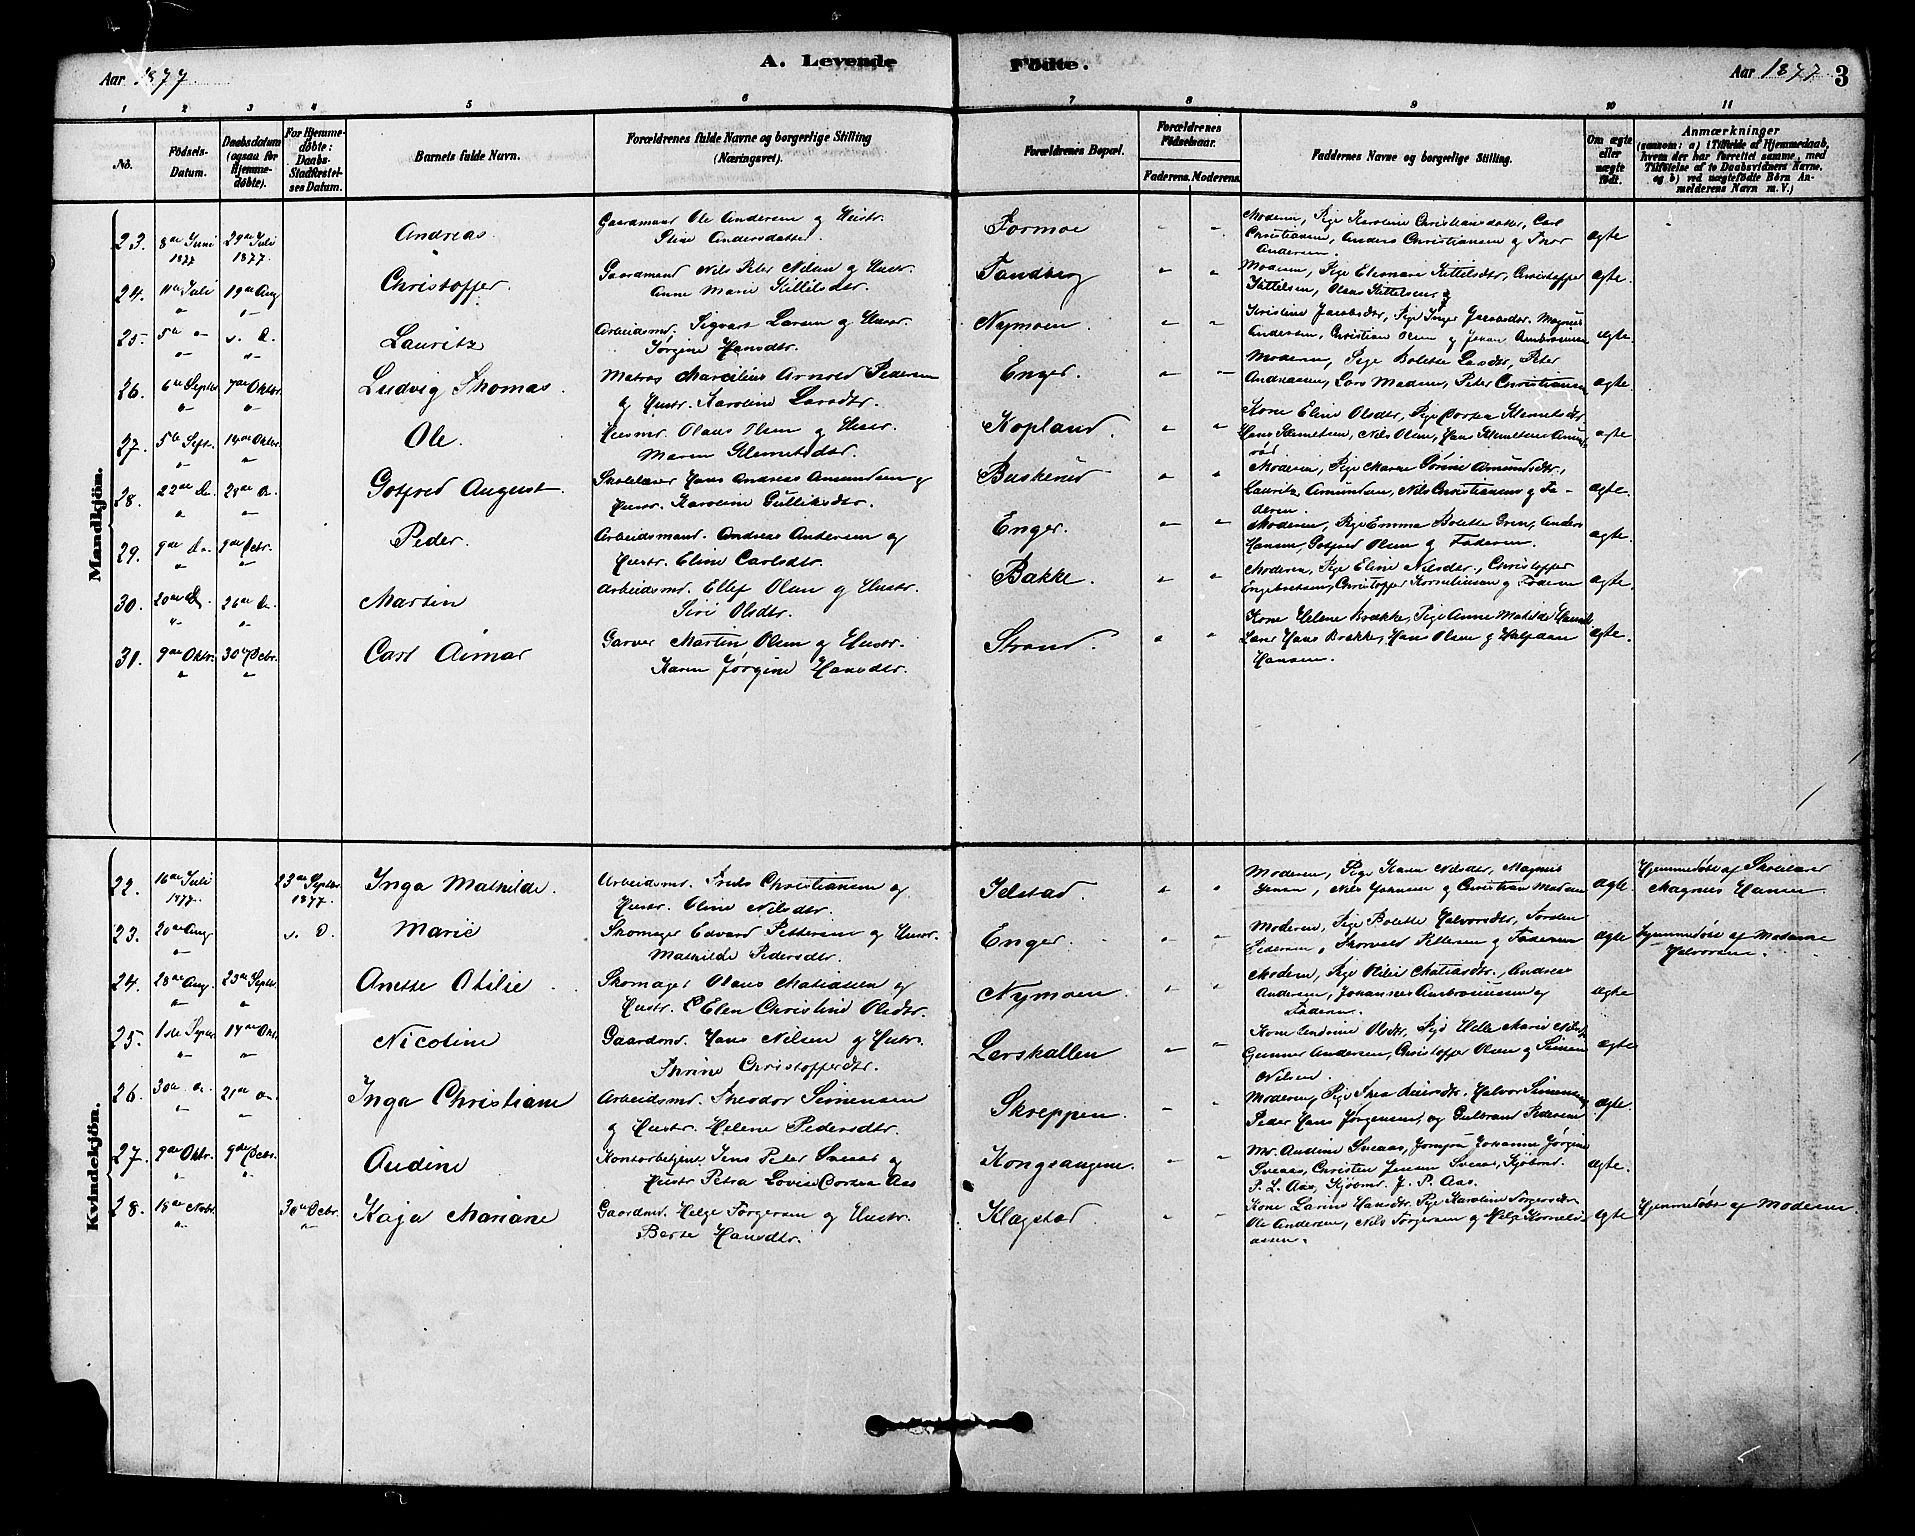 Aar 1877. A. Levende Fødte. Aar 1877 3
1 2 3 4 5 6 7 8 9 10 11
No.
Fødsels-Datum.
Daabsdatum (ogsaa for Hjemmedøbte).
For Hjemmedøbte: Daabs-Stadfæstelses Datum.
Barnets fulde Navn.
Forældrenes fulde Navne og borgerlige Stilling (Næringsvei).
Forældrenes Bopæl.
Forældrenes Fødselsaar.
Faderens. Moderens.
Faddernes Navne og borgerlige Stilling.
Om ægte eller uægte født.
Anmærkninger
(saasom: a) i Tilfælde af Hjemmedaab, hvem der har forrettet samme, med Tilføielse af to Daabsvidners Navne, og b) ved uægtefødte Børn Anmelderens Navn m. V.)
Mandkjøn.
23. 8de Juni 1877 29de Juli 1877. Andreas Gaardmand Ole Andersen og Hustr. Formoe Moderen, Pige Karoline Christiansdatter, Carl ægte
Stine Andersdatter. Christiansen, Anders Christiansen og Thor Andersen.
24. 11te Juli 19de Aug Christoffer. Gaardmand Nils Peter Nilsen og Hustr. Tandberg Moderen, Pige Elenare Kittelsdtr, Christoffer ægte.
Anne Marie Kittilsdtr. Kittelsen, Olaus Kittelsen og
25. 5te Lauritz Arbeidsmd. Sigvart Larsen og Hustr. Nymoen Kristine Jacobsdtr, Pige Inger Jacobsdtr. Magnus ægte.
Jørgine Hansdtr. Andersen, Christian Olsen og Johan Ambrosiusen
26. 6te Septbr 7de Oktbr Ludvig Thomas. Matros Marcilius Arnold Pedersen Enger. Moderen, Pige Bolette Larsdtr, Peter ægte.
og Hustr. Karoline Larsdtr. Andreasen, Lars Madsen, Peter Christiansen
27. 5te Sept. 14de Oktbr. Ole. Huusmd. Olaus Olsen og Hustr. Kopland. Kone Eline Olsdtr, Pige ægte
Maren Klemetsdtr. Hans Klemetsen, Nils Olsen, Hans Klemetsen
28. 22de Do. 28de Do. Gotfred August. Skolelærer Hans Andreas Amundsen og Buskerud Moderen, Pige Maren Amundsdtr, ægte.
Hustr. Karoline Gulliksdtr. Lauritz Amundsen, Nils Christiansen og Faderen.
29. 9de Do. 9de Decbr. Peder. Arbeidsmand. Andreas Andersen og Enger. Moderen, Pige Emma Bolette Gren, Anders ægte.
Hustr. Eline Carlsdtr. Hansen, Gotfred Olsen og Faderen.
30. 20de Do. 26de Do. Martin Arbeidsmd. Ellef Olsen og Hustr. Bakke. Moderen, Pige Eline Nilsdtr, Christoffer ægte
Siri Olsdtr. Engebretsen, Christoffer Korneliusen og Faderen
31. 9de Oktbr. 30te Decbr. Carl Aimar Garver Martin Olsen og Hustr. Strand. Kone Helene Brække, Pige Anne Matilde ægte.
Karen Jørgine Hansdtr. Lærer Hans Brække, Hans Olsen og Halfdan Hansen.
Kvindekjøn.
22. 16de Juli 1877. 23de Septbr 1877. Inga Mathilde. Arbeidsmd. Christiansen og Idstad Moderen, Pige Karen Nilsdtr, Magnus ægte. Hjemmedøbt af Skolelærer
Hustr. Oline Nilsdtr. Jensen, Nils Johnsen og Christian Madsen Magnus Hansen.
23. 20de Aug s. D. Marie Skomager Edvard Pettersen og Hustr. Enger. Moderen, Pige Bolette Halvorsdtr, Torsten ægte Hjemmedøbt af Madame
Mathilde Pedersdtr. Pedersen, Thorvald Pettersen og Faderen Halvorsen.
24. 28de Aug. 23de Septbr Anette Otilie Skomager Olaus Matiasen og Nymoen. Moderen, Pige Matiasdtr. Andreas ægte
Hustr. Elen Christine Olsdtr. Andersen, Johannes Ambrosiussen og Faderen.
25. 1ste Septbr 14de Oktbr. Nicoline Gaardmd. Hans Nilsen og Hustr. Lerskallen Kone Andrine Olsdtr, Pige Helle Marie ægte
Thrine Christoffersdtr. Gunner Andersen, Christoffer Olsen og Simen Nilsen.
26. 30te 21de Inga Christiane Arbeidsmd. Theodor Simensen Skreppen. Moderen, Pige Thea, Halvor Simensen, ægte.
og Hustr. Helene Pedersdtr. Peder Hans Jørgensen, og Gulbrand Pedersen
27. 9de Oktbr. 9de Decbr. Audine Kontorbetjent Jens Peter Sveaas og Kongsangene. Andine Sveaas, Jomfru Johanne Jørgine ægte.
Hustr Petra Lovise Cordea Aas Sveaas, Christen Jensen Sveaas, Kjøbmd.
P. L. Aas, Kjøbmd. J. P. Aas.
28. 18de Novbr. 30te Decbr. Kaja Mariane Gaardmd. Helge Torgersen og Hustr. Klagstad. Kone Larine Hansdtr, Pige Karoline Torgersdtr ægte Hjemmedøbt af Moderen.
Berte Hansdtr. Ole Andersen, Nils Torgersen og Helge Korneliussen.